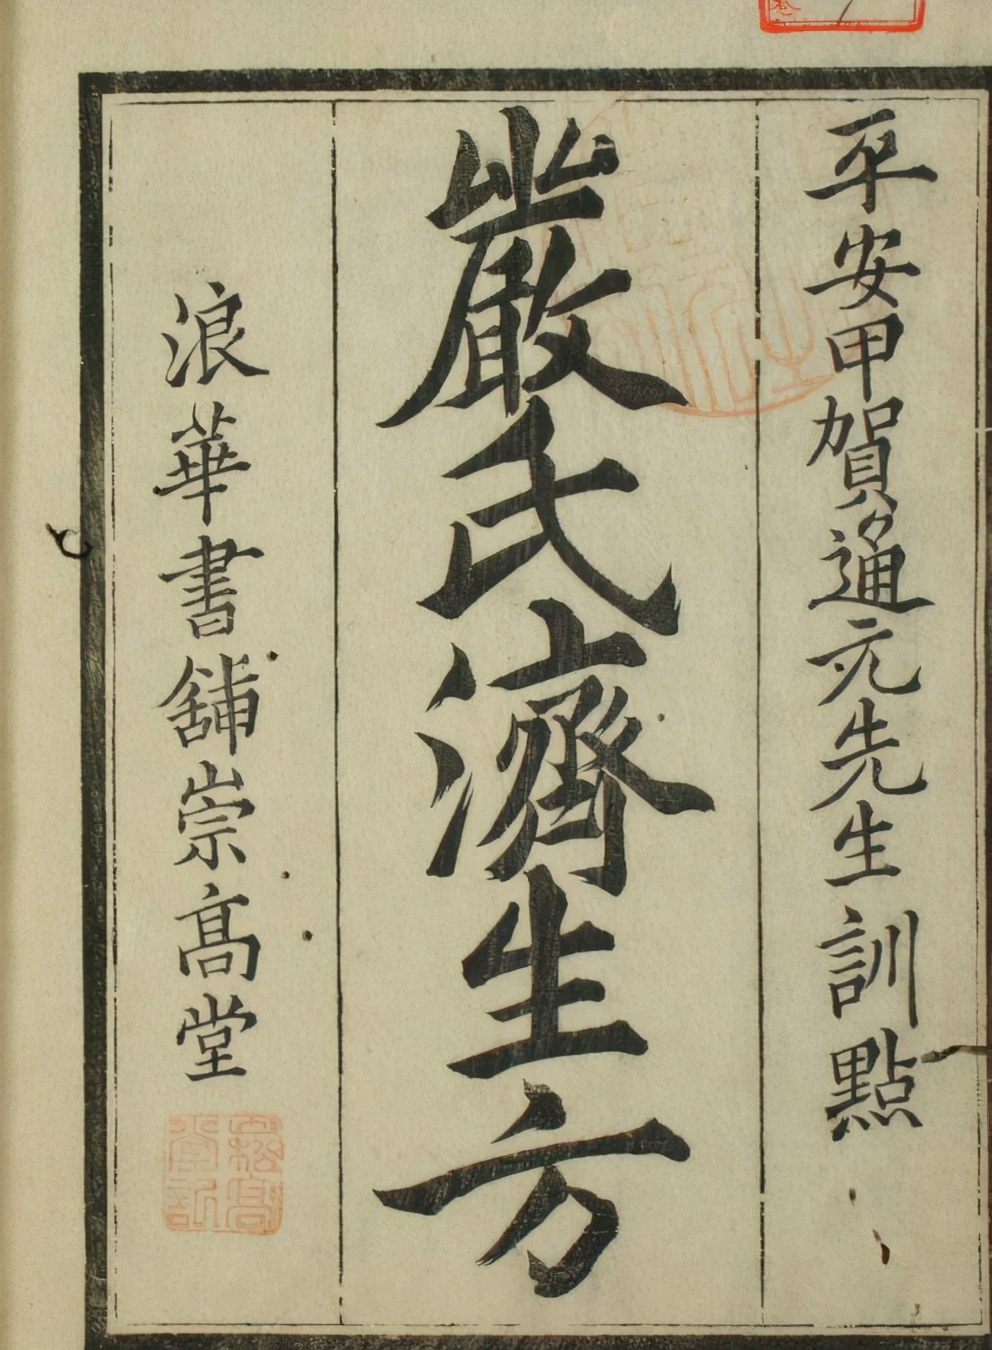 平安甲賀通元先生訓點
嚴氏濟生方
浪華書舖崇高堂